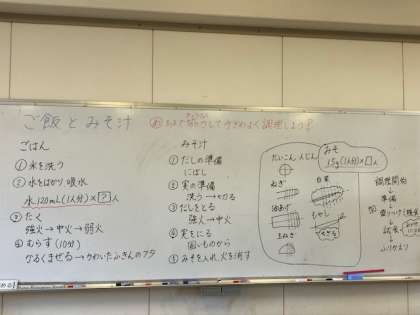 ご飯とみそ汁
協力して手ぎわよく調理しよう!
ごはん
① 米を洗う
② 水をはかり 吸水
水120mL(1人分)×?人
③ たく
強火→中火→弱火
④ むらす(10分)
かるくまぜる→かわいたふきんのフタ
みそ汁
① だしの準備
にぼし
② 実の準備
洗う→切る
③ だしをとる
強火→中火
④ 実をにる
固いものから
⑤ みそを入れ、火を消す
みそ
15g(1人分)×□人
だいこん
にんじん
ねぎ
白菜
油あげ
もやし
玉ねぎ
調理開始
準備
試食
ふりかえり